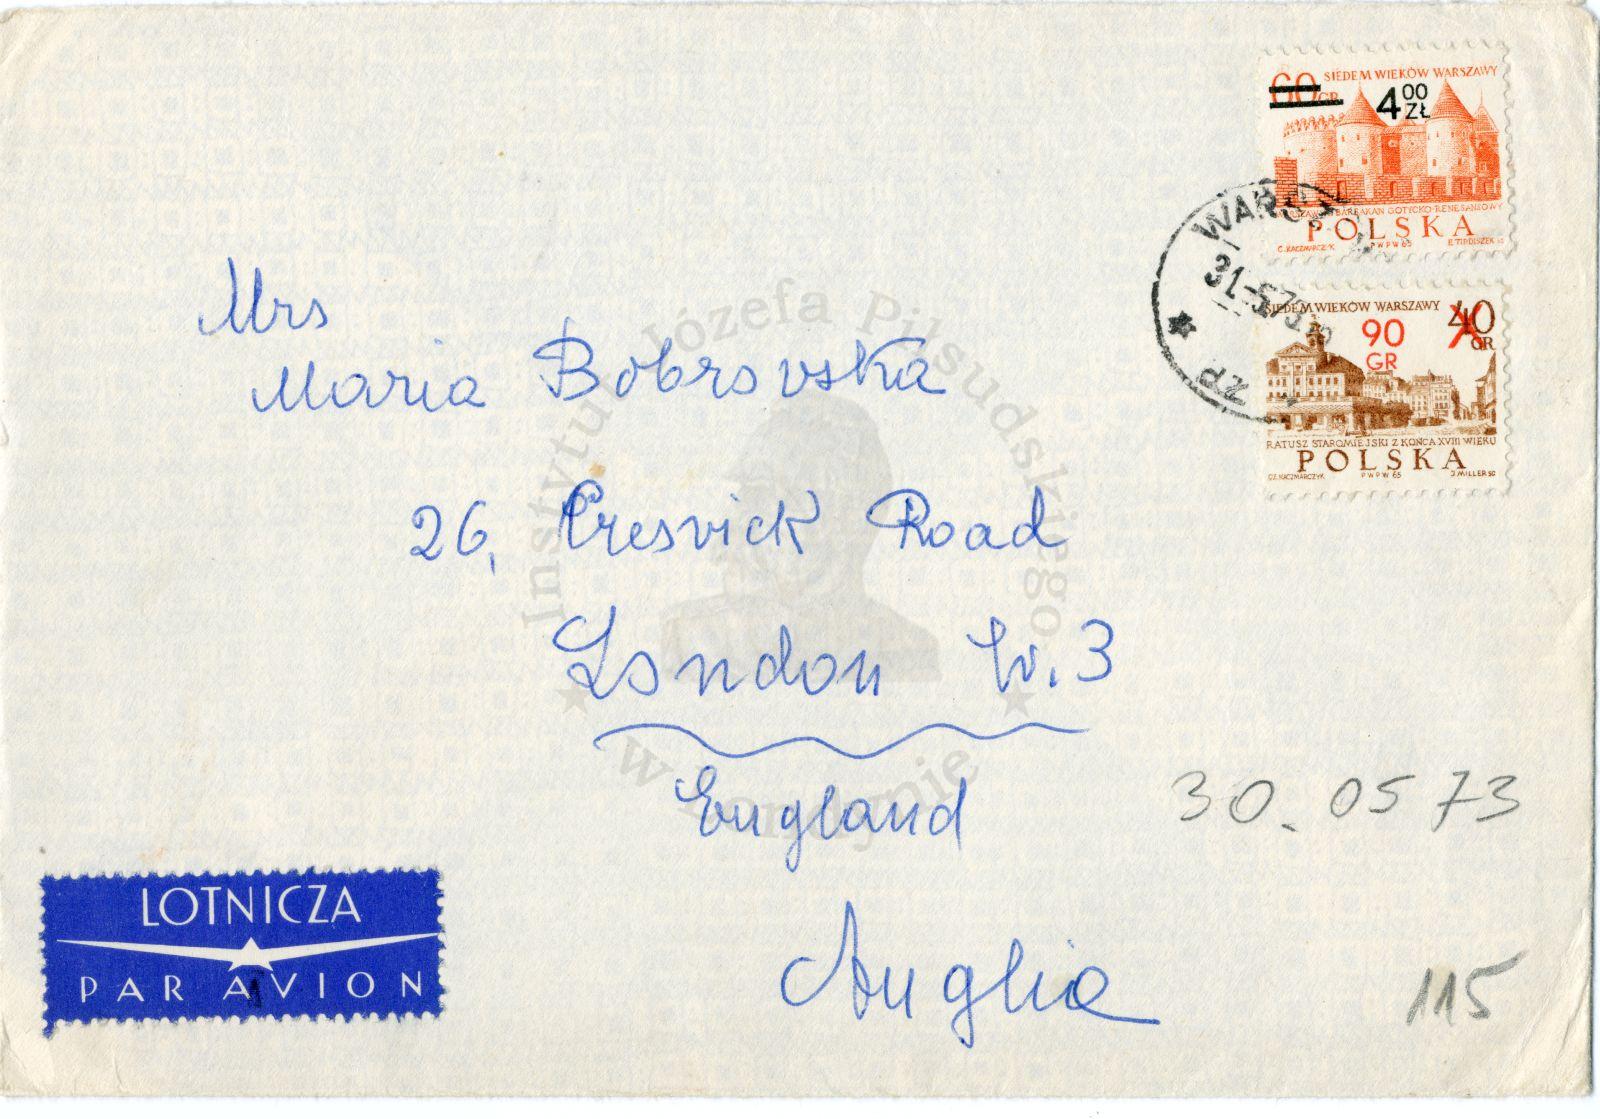 SIEDEM WIEKÓW WARSZAWY
60 GR
4 00 ZŁ
BARBAKAN GOTYCKO-RENESANSOWY
POLSKA
C. KACZMARCZYK PWPW 65
WARSZ
31.-5.73
SIEDEM WIEKÓW WARSZAWY 40 GR
90 GR
RATUSZ STAROMIEJSKI Z KOŃCA XVIII WIEKU
POLSKA
CZ. KACZMARCZYK PWPW 65 J. MILLER SC
Mrs
Maria Bobrovska
26, Cresvick Road
London W.3
England
Anglia
30.05 73
115
LOTNICZA
PAR AVION
Instytut Józefa Piłsudskiego
w Londynie